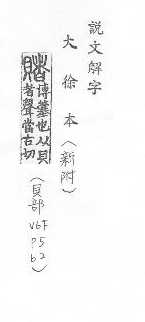 説文解字
大徐本（新附）
賭博簺也从貝
者聲當古切
（貝部
V6下
P.5
b.2）